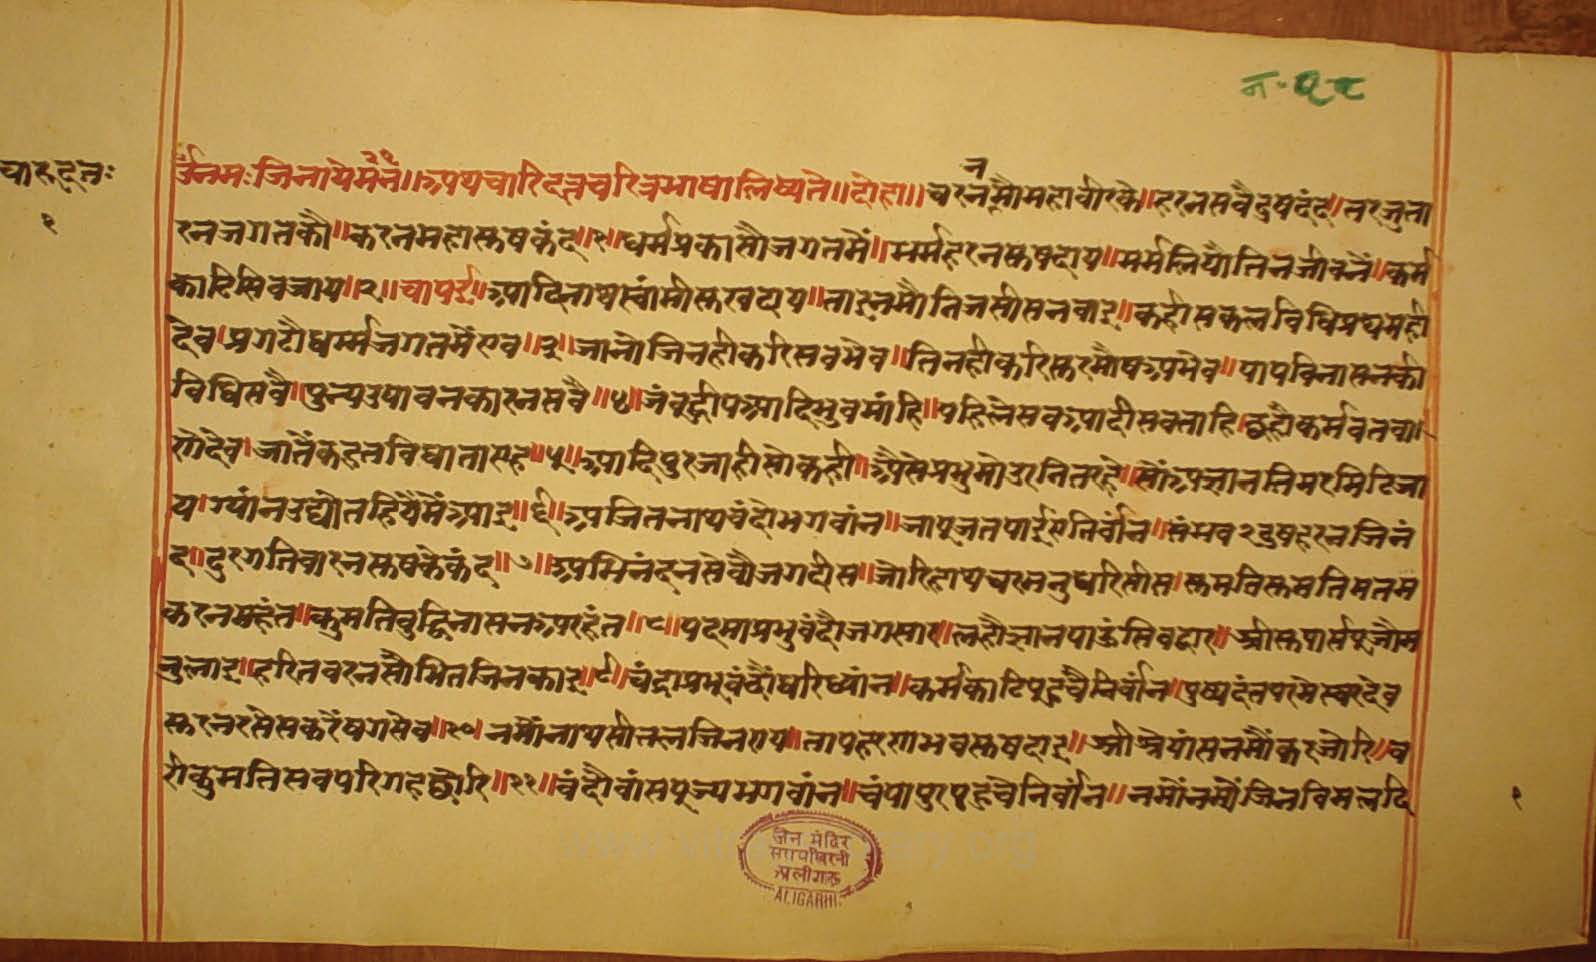 न॰ १८
चारुदत्तः
१
उँनमः जिनायेमनं॥ अथ चारिदत्तचरित्रभाषालिष्यते॥ दोहा॥ चरन नमौ महावीरके॥ हरन सवै दुषदंद॥ तरजुता
रन जगतकौ॥ करन महासुषकंद॥१॥ धर्मप्रकासौ जगतमैं॥ भर्महरन सुषदाय॥ मर्म लियौ तिन जीवनैं॥ कर्म
काटि सिव जाय॥२॥ चौपई॥ आदिनाथ स्वांमी सुखदाय॥ ताइ नमौ तिज सीस नवाइ॥ कही सकल विधि प्रथमही
देव॥ प्रगटौ धर्म्म जगतमैं एव॥३॥ जानो जिनही करि सव भेव॥ तिनही करि सुरमौष अभेव॥ पाप विनासनकी
विधि सवै॥ पुन्य उपावन कारन सवै॥४॥ जंबूद्वीप आदि भुव मांहि॥ पहिले सव आदीस वताहि॥ छहौ कर्म वतवा
ए देव॥ जातैं कहत विधाता एह॥५॥ आदि पुर जाही सो कही॥ अैसे प्रभु मो उर नित रहे॥ सों अज्ञान तिमर मिटि जा
य॥ ग्यांन उद्योत हियैमैं आइ॥६॥ अजितनाथ वंदो भगवांन॥ जा पूजत पाईए निर्वांन॥ संभव २ दुषहरन जिनं
द॥ दुरगति वारन सुषके कंद॥७॥ अभिनंदन सेवौ जगदीस॥ जोरि हाथ चरननु धरि सीस॥ सुमति सुमति मतम
करन महंत॥ कुमति वुद्धि नासन अरहंत॥८॥ पदमाप्रभु वंदौ जगसार॥ लहौ ज्ञान पाऊं सिवद्वार॥ श्रीसुपार्स पूजौ म
नु लाइ॥ हरित वरन सोभित जिन काइ॥९॥ चंद्राप्रभू वंदौं धरि ध्यांन॥ कर्म काटि पहुचै निर्वांन॥ पुष्पदंत परमेस्वरदेव
सुर नर सेस करैं षग सेव॥१०॥ नमौं नाथ सीतल जिनराय॥ ताप हरण भव सुषदाइ॥ श्री श्रेयांस नमौं कर जोरि॥ व
री कुमति सव परिगह छोरि॥११॥ वंदौ वांसपूज्य भगवांन॥ चंपापुर पहुचै निर्वांन॥ नमौं नमौं जिन विमल दि
१
जैन मंदिर
अलीगढ़
ALIGARH